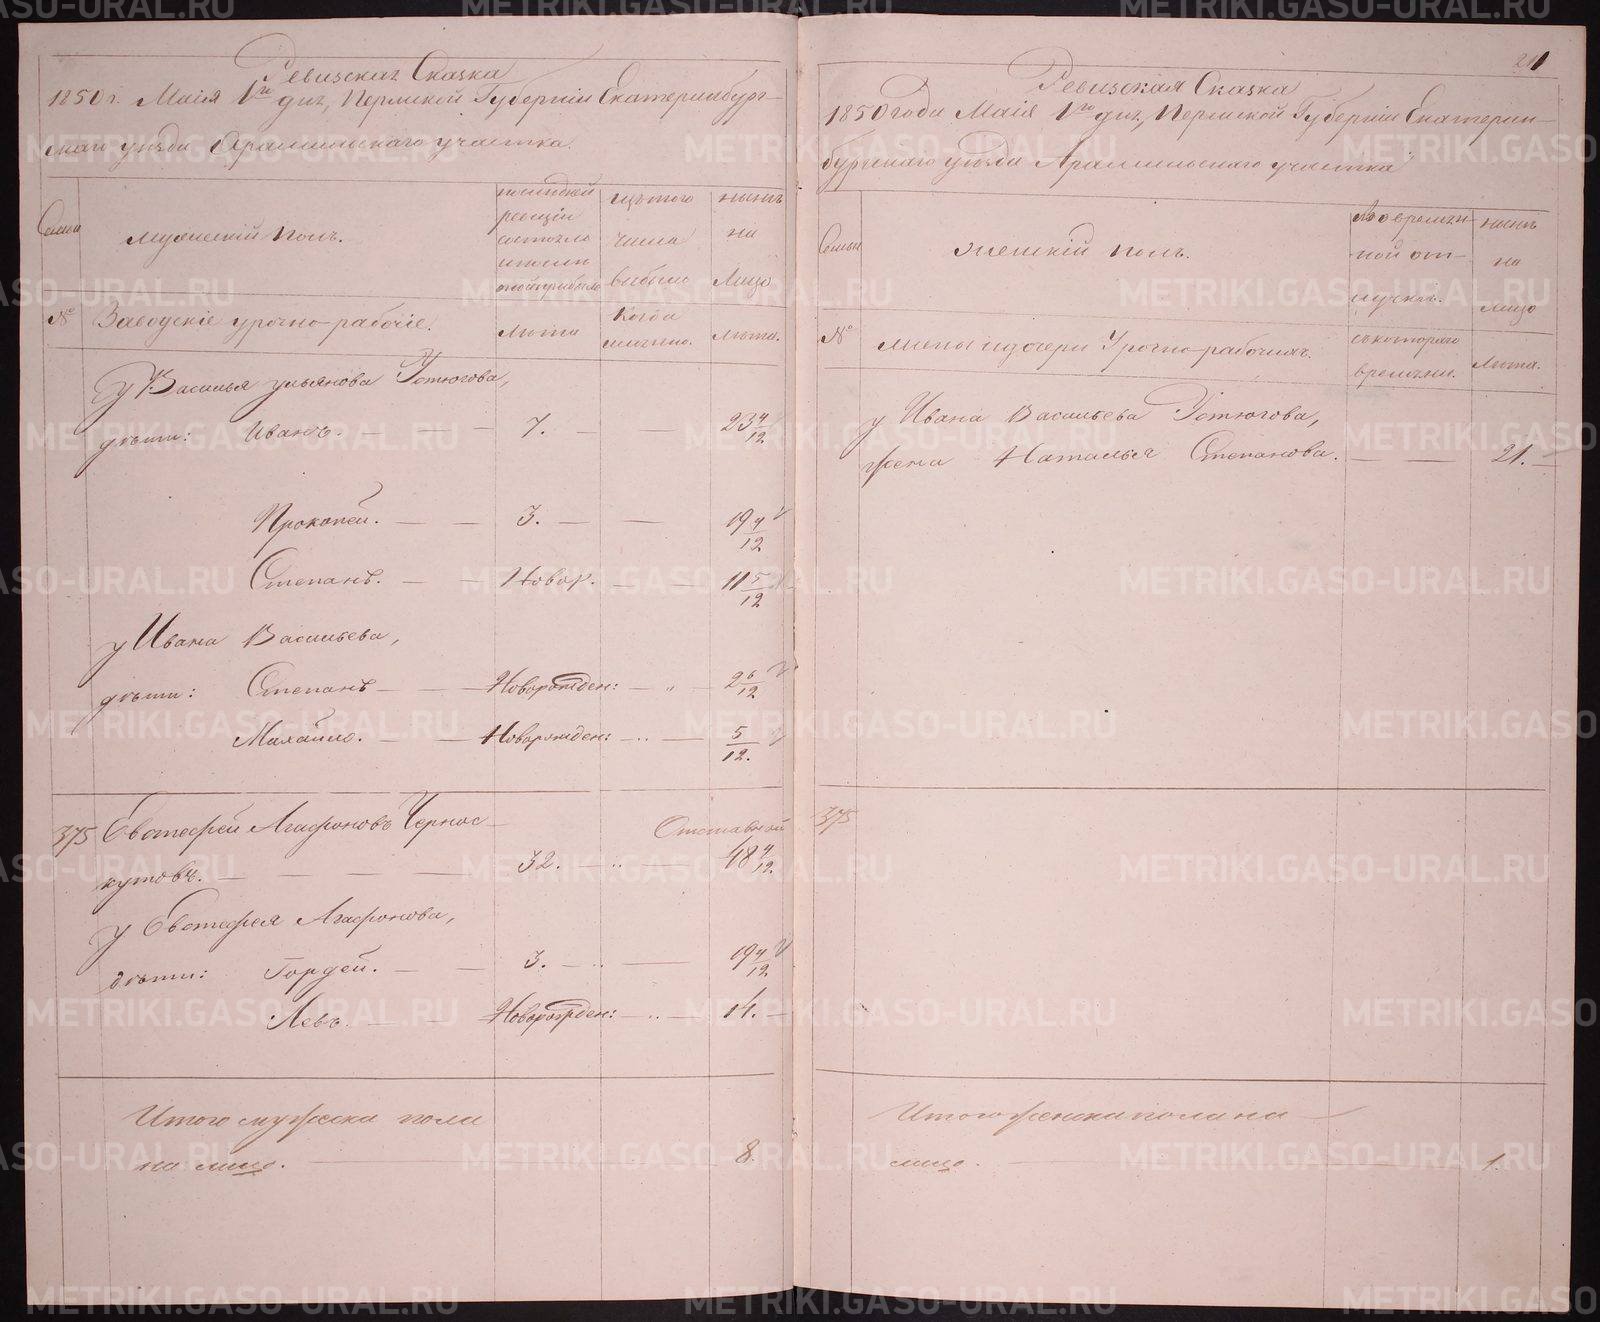 Ревизская Сказка
1850 г. Маiя 1го дня, Пермской Губернiи Екатеринбург-
скаго уѣзда Арамильскаго участка.
Семьи
Мужескiй полъ.
последней
ревизiи
состояло
и после
оной прибыло
изъ того
числа
выбыло
нынѣ
на
лицо
№
Заводскiе урочно-рабочiе.
Лѣта
Когда
именно.
Лѣта.
у Василья Ульянова Устюгова,
дѣти: Иванъ. 7. 23 4/12
Прокопей. 3. 19 4/12
Степанъ. Новор. 11 5/12
у Ивана Васильева,
дѣти: Степанъ Новорожден: 2 6/12
Михайло. Новорожден: 5/12.
375 Евстефей Агафоновъ Чернос-
Отставной
кутовъ. 32. 48 4/12
у Евстефея Агафонова,
дѣти: Гордей. 3. 19 4/12
Левъ. Новорожден: 14.
Итого мужеска пола
на лицо. 8.
211
Ревизская Сказка
1850 года Маiя 1го дня, Пермской Губернiи Екатерин-
бургскаго уѣзда Арамильскаго участка
Семьи
Женскiй полъ.
Во времян-
ной от-
лучкѣ.
нынѣ
на
лицо
№
жены и дочери Урочно-рабочихъ.
съ котораго
времени.
Лѣта.
у Ивана Васильева Устюгова,
жена Наталья Степанова. 21.
375
Итого женска пола на
лицо. 1.
METRIKI.GASO-URAL.RU